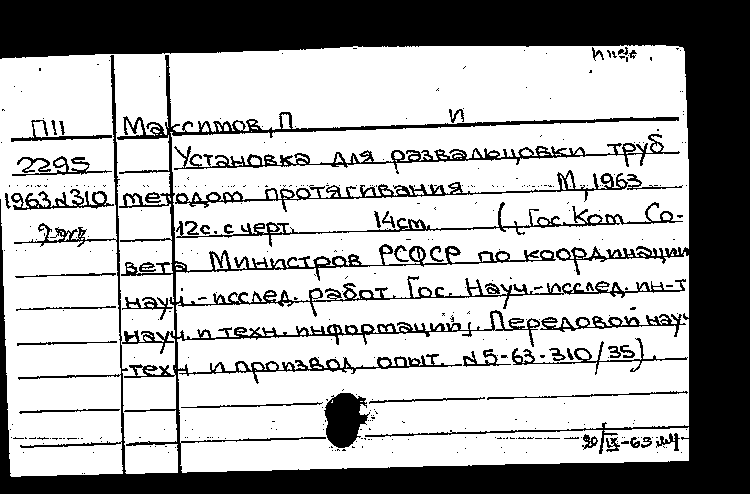 и
ПII Максимов, П
2295 Установка для развальцовки труб
1963№310 методом протягивания М, 1963
2экз 12с. с черт. 14см. (Гос. Ком Со-
вета Министров РСФСР по координации
науч.-исслед. работ. Гос. Науч.-исслед. ин-т
науч. и техн. информации. Передовой науч
-техн и производ опыт. №5-63-310/35).
20/IX-63